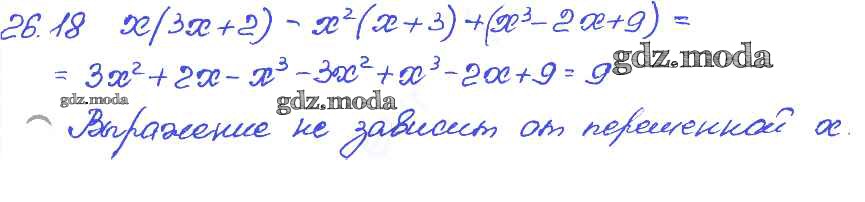 26.18 x(3x+2) - x²(x+3) + (x³-2x+9) =
= 3x²+2x-x³-3x²+x³-2x+9 = 9
gdz.moda
gdz.moda
gdz.moda
Выражение не зависит от переменной x.